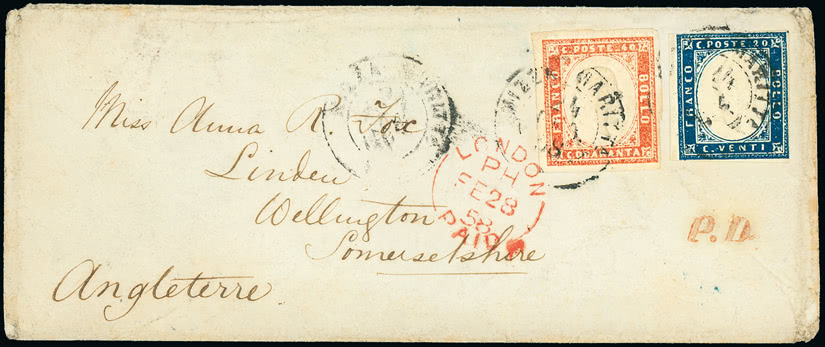 C. POSTE 40
FRANCO
BOLLO
C. QUARANTA
C. POSTE 20
FRANCO
BOLLO
C. VENTI
NIZZA MARITTA
Miss Anna R. Fox
Linden
Wellington
Somersetshire
Angleterre
LONDON
PH
FE 28
58
PAID
P.D.